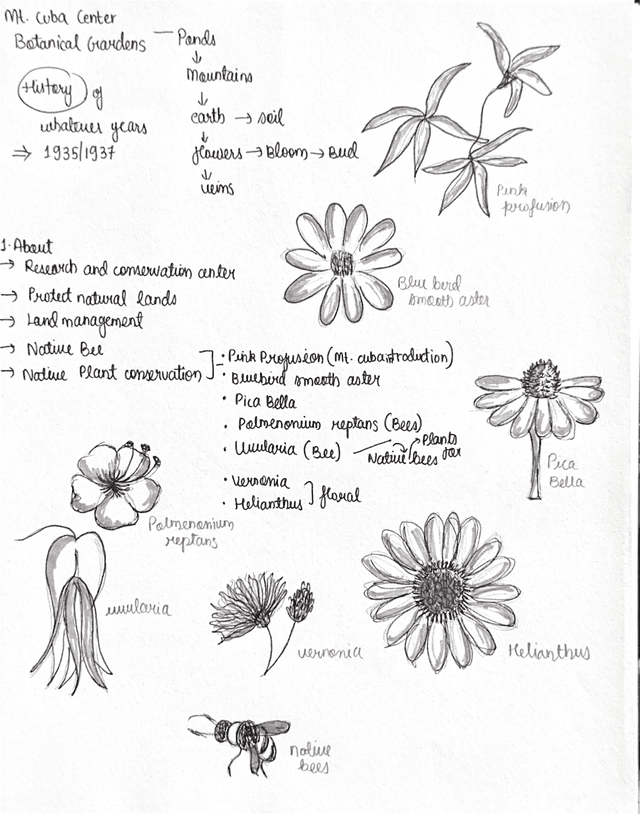 Mt. Cuba Center
Botanical Gardens — Ponds
↓
Mountains
↓
earth → soil
↓
flowers → Bloom → Bud
↓
veins
History of
whatever years
⇒ 1935/1937
Pink
profusion
1. About
→ Research and conservation center
→ Protect natural lands
→ Land management
→ Native Bee
→ Native Plant conservation
Blue bird
smooth aster
• Pink Profusion (Mt. cuba introduction)
• Bluebird smooth aster
• Pica Bella
• Polmenonium reptans (Bees)
• Uvularia (Bee) → Plants for
Native bees
• Vernonia
• Helianthus } floral
Pica
Bella
Polmenonium
reptans
uvularia
vernonia
Helianthus
native
bees